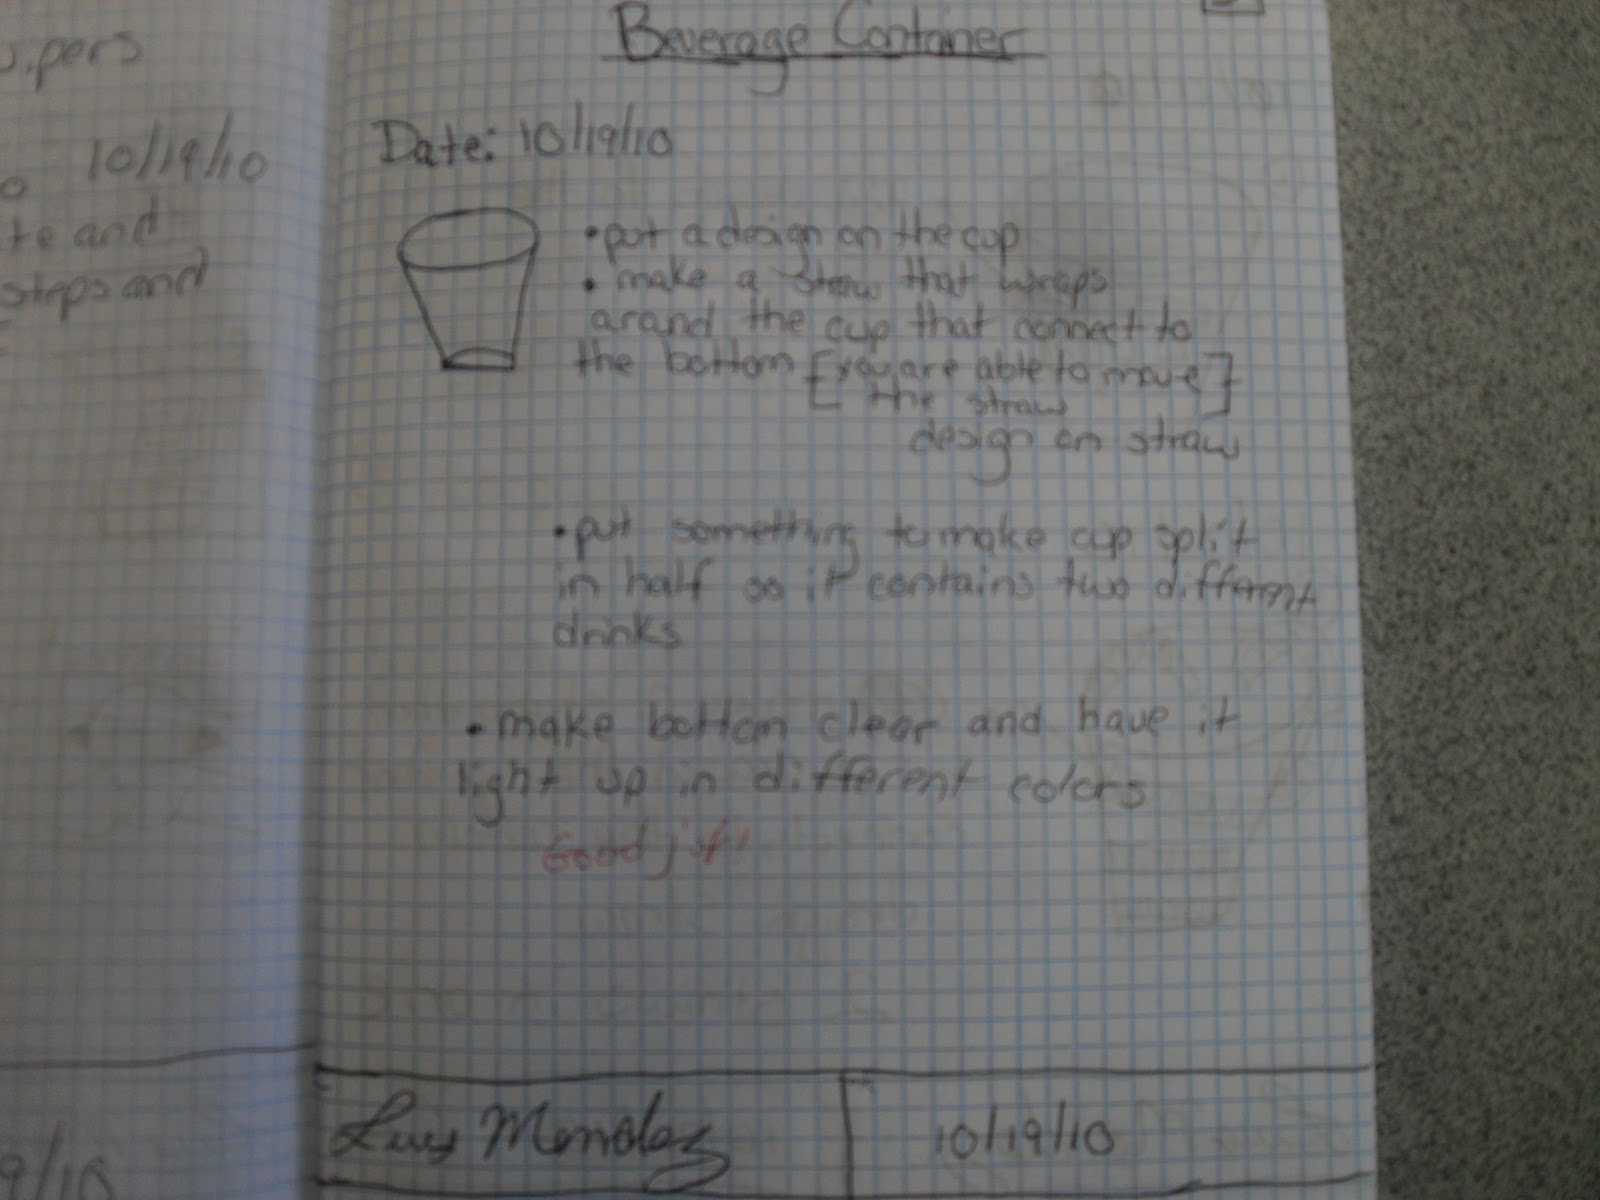 10/19/10
te and
steps and
Beverage Container
Date: 10/19/10
• put a design on the cup
• make a straw that wraps
around the cup that connect to
the bottom [you are able to move]
[the straw]
design on straw
• put something to make cup split
in half so it contains two different
drinks
• make bottom clear and have it
light up in different colors
Good
Luis Mendez
10/19/10
9/10